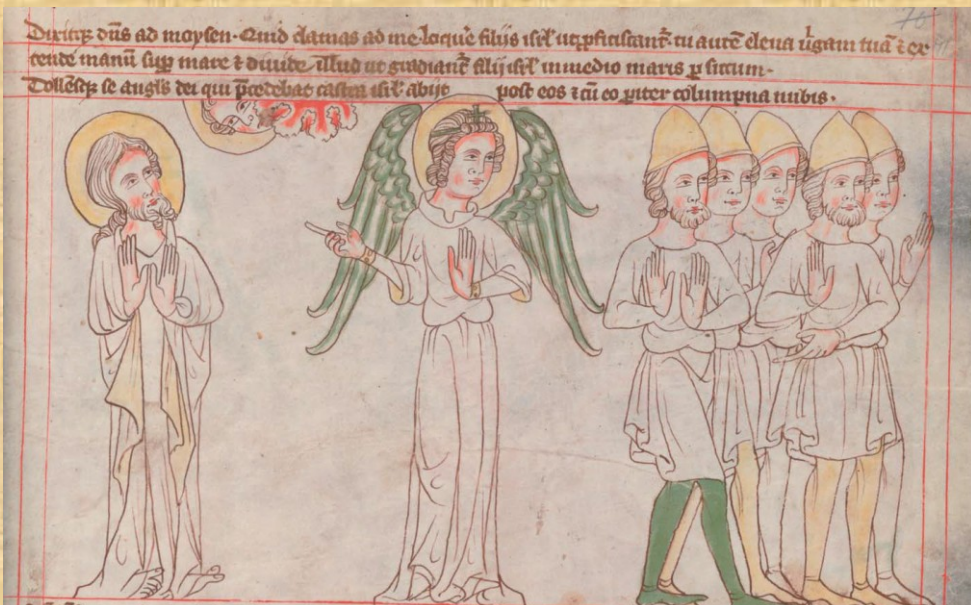 Dixitqꝫ dñs ad moysen. Quid clamas ad me loq̃re filijs isrl̃ ut ꝓficiscant̃. tu autẽ eleua ũgam tuã ⁊ ex
tende manũ suꝑ mare ⁊ diuide illud ut gradiant̃ filij isrl̃ in medio maris ꝑ siccum.
Tollẽsqꝫ se angls̃ dei qui p̃cedebat castra isrl̃ abijt post eos ⁊ cũ eo ꝑiter columpna nubis.